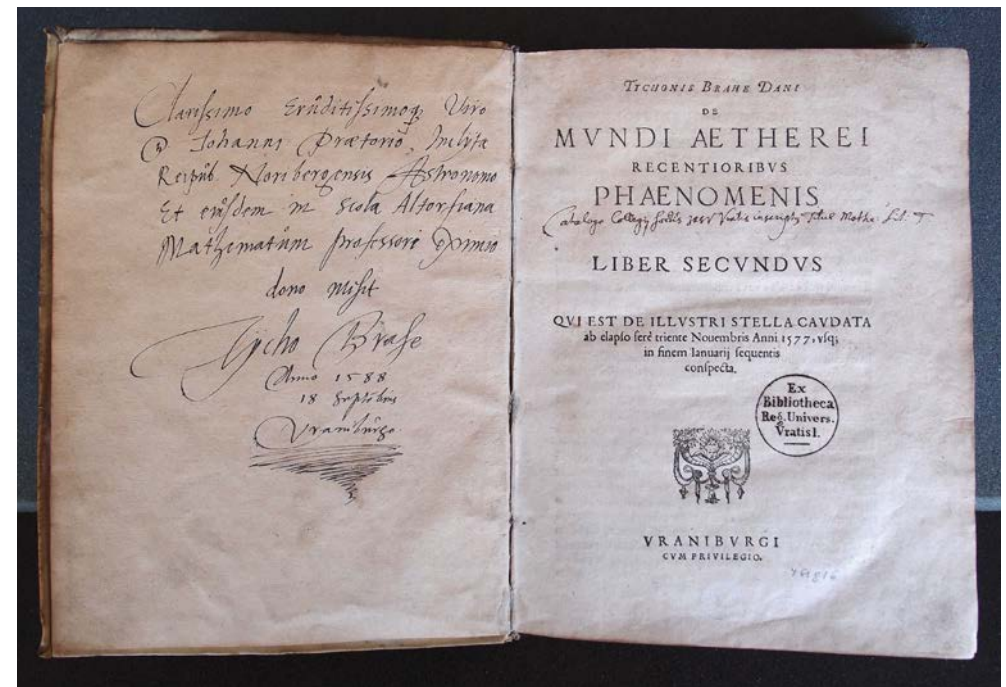 Clarissimo Eruditissimoq; Viro
D Johanni Prætorio, Inclytæ
Reipub. Noribergensis Astronomo
Et ejusdem in Scola Altorfiana
Mathematum professori Eximio
dono misit
Tycho Brahe
Anno 1588
18 Septobris
Uraniburgo
TYCHONIS BRAHE DANI
DE
MVNDI AETHEREI
RECENTIORIBVS
PHAENOMENIS
Catalogo Collegij Societ Jesu Vratis inscriptus Titul Mathe. Lit.
LIBER SECVNDVS
QVI EST DE ILLVSTRI STELLA CAVDATA
ab elapso ferè triente Nouembris Anni 1577, vsq;
in finem Ianuarij sequentis
conspecta.
Ex
Bibliotheca
Reg. Univers.
Vratisl.
VRANIBVRGI
CVM PRIVILEGIO.